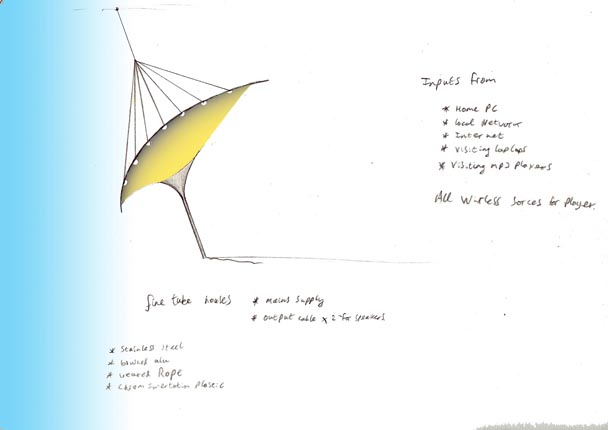 Inputs from
* Home PC
* Local Network
* Internet
* Visiting laptops
* Visiting mp3 players
All Wirless Sorces for player.
fine tube houses
* mains supply
* output cable x 2 for speakers
* Stainless steel
* alu
* weaved Rope
* Plastic